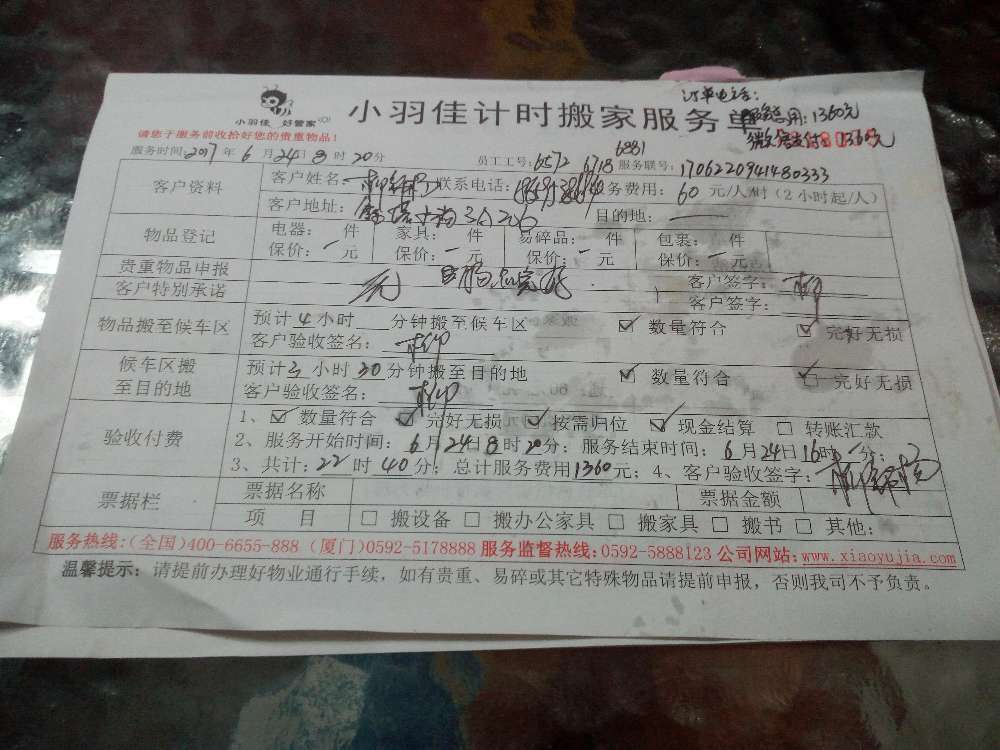 订单电话：
小羽佳 好管家
小羽佳计时搬家服务单
服务费用：1360元
1360元
请您于服务前收拾好您的贵重物品！
服务时间：2017年6月24日8时20分
员工工号：6572 6718 6881
服务联号：1706220941480333
客户资料
客户姓名： 联系电话： 服务费用：60元/人/时（2小时起/人）
客户地址： 目的地：
物品登记
电器： 件 家具： 件 易碎品： 件 包裹： 件
保价： 元 保价： 元 保价： 元 保价： 元
贵重物品申报 无 客户签字：
客户特别承诺 客户签字：
物品搬至候车区
预计4小时 分钟搬至候车区 数量符合 完好无损
客户验收签名：
候车区搬至目的地
预计3小时30分钟搬至目的地 数量符合 完好无损
客户验收签名：
验收付费
1、数量符合 完好无损 按需归位 现金结算 转账汇款
2、服务开始时间：6月24日8时20分；服务结束时间：6月24日16时 分；
3、共计：22时40分；总计服务费用1360元；4、客户验收签字：
票据栏
票据名称 票据金额
项 目 搬设备 搬办公家具 搬家具 搬书 其他：
服务热线：（全国）400-6655-888（厦门）0592-5178888 服务监督热线：0592-5888123 公司网站：www.xiaoyujia.com
温馨提示：请提前办理好物业通行手续，如有贵重、易碎或其它特殊物品请提前申报，否则我司不予负责。